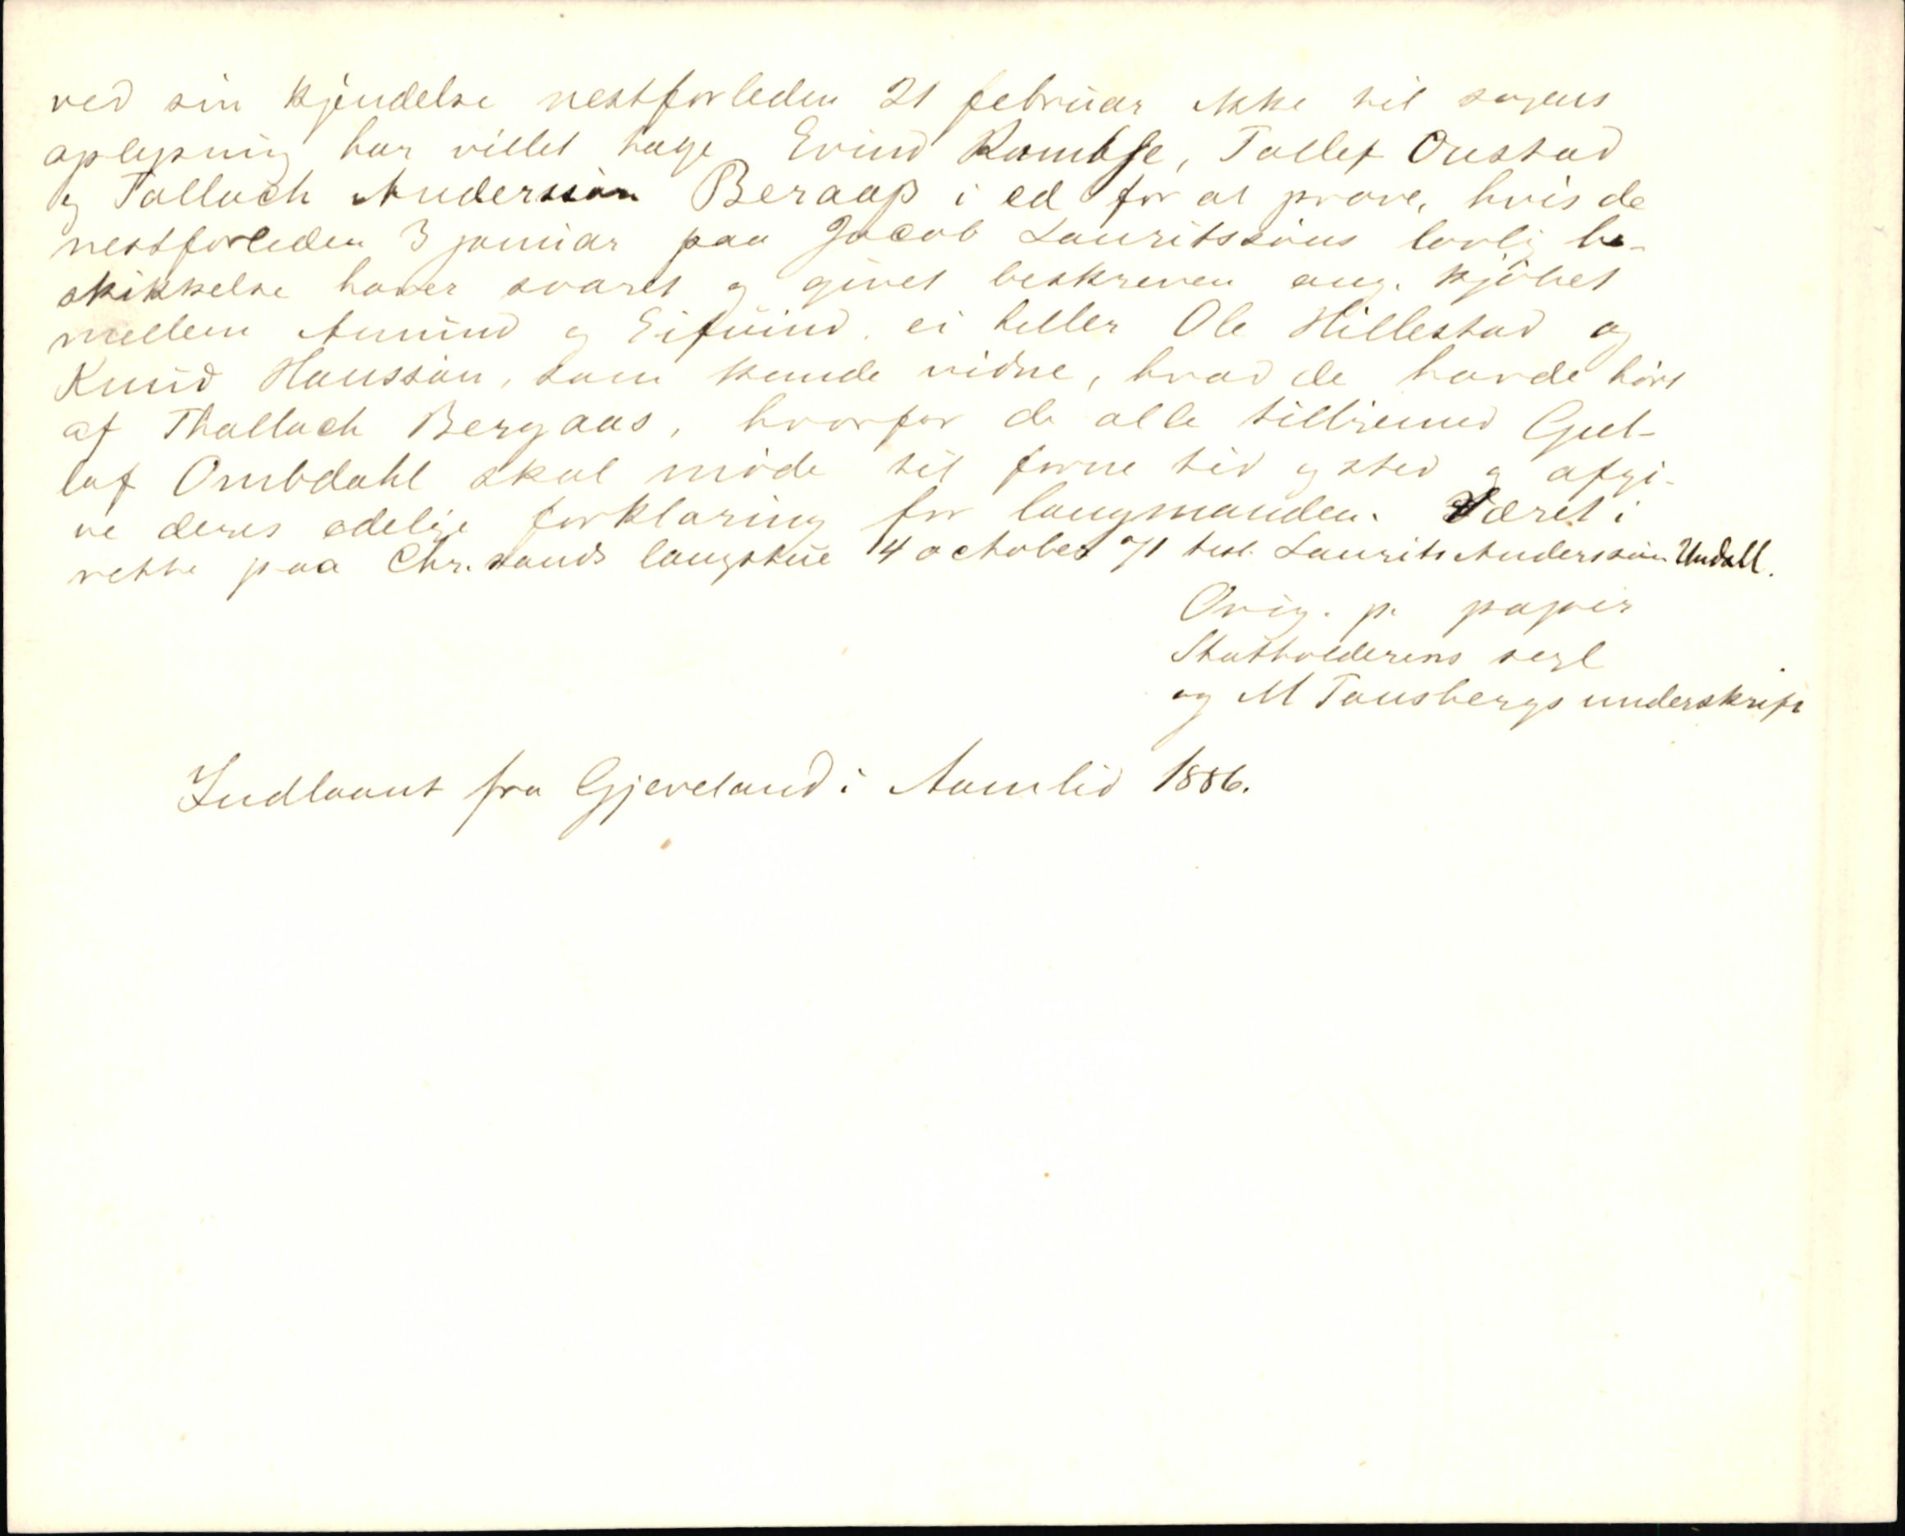 ved sin kjendelse nestforleden 21 februar ikke til sagens
oplysning har villet tage Evind Rambse, Tallef Oustad
og Tallach Anderssøn Beraaß i ed for at prøve, hvis de
nestforleden 3 januar paa Jacob Lauritssøns lovlig be-
skikkelse haver svaret og givet beskreven ang. kjøbet
mellem Amund og Eifuind. ei heller Ole Hillestad og
Knud Hanssøn, som kunde vidne, hvad de havde hørt
af Thallach Bergaas, hvorfor de alle tillige med Gul-
laf Ombdahl skal møde til forne tid og sted og afgi-
ve deres edelige forklaring for laugmanden. Været i
rette paa Chr.sands laugstue 4 october 71 test. Laurits Anderssøn Undall.
Orig. p. papir
Statholderens segl
og M Tonsbergs underskrift
Indlaant fra Gjeveland i Aamlid 1886.